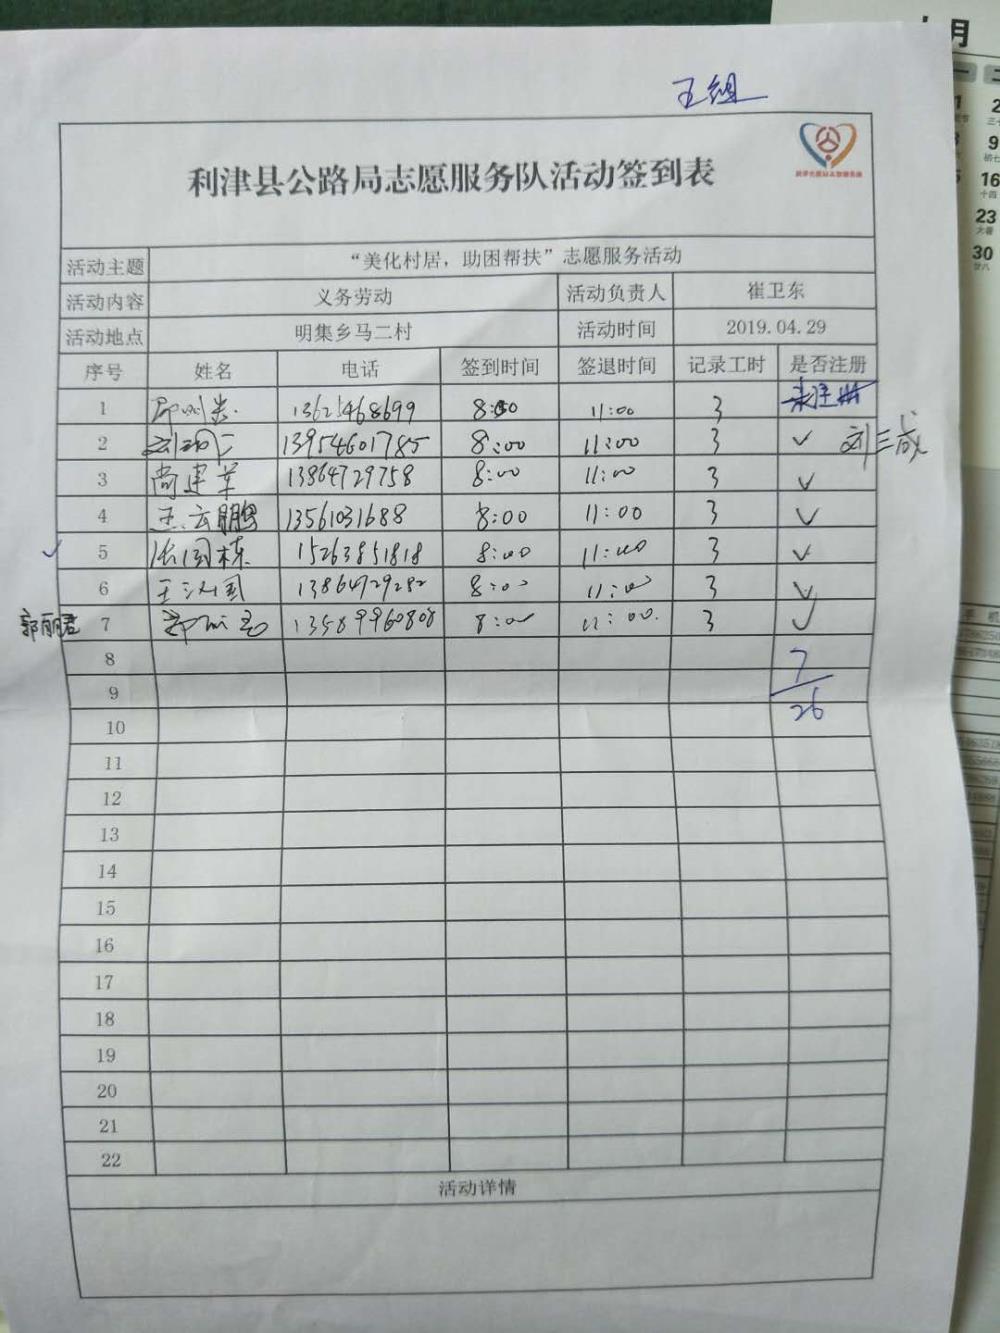 月
王组
利津县公路局志愿服务队活动签到表
活动主题 “美化村居，助困帮扶”志愿服务活动
活动内容 义务劳动 活动负责人 崔卫东
活动地点 明集乡马二村 活动时间 2019.04.29
序号 姓名 电话 签到时间 签退时间 记录工时 是否注册
1 13625468699 8:00 11:00 3 未注册
2 13954601785 8:00 11:00 3 ✓ 刘三成
3 尚建军 13864729758 8:00 11:00 3 ✓
4 王云鹏 13561031688 8:00 11:00 3 ✓
✓ 5 张国栋 15263851818 8:00 11:00 3 ✓
6 13864729282 8:00 11:00 3 ✓
郭丽君 7 13589960808 8:00 11:00. 3 ✓
8 7
9 26
10
11
12
13
14
15
16
17
18
19
20
21
22
活动详情
9
16
23
30